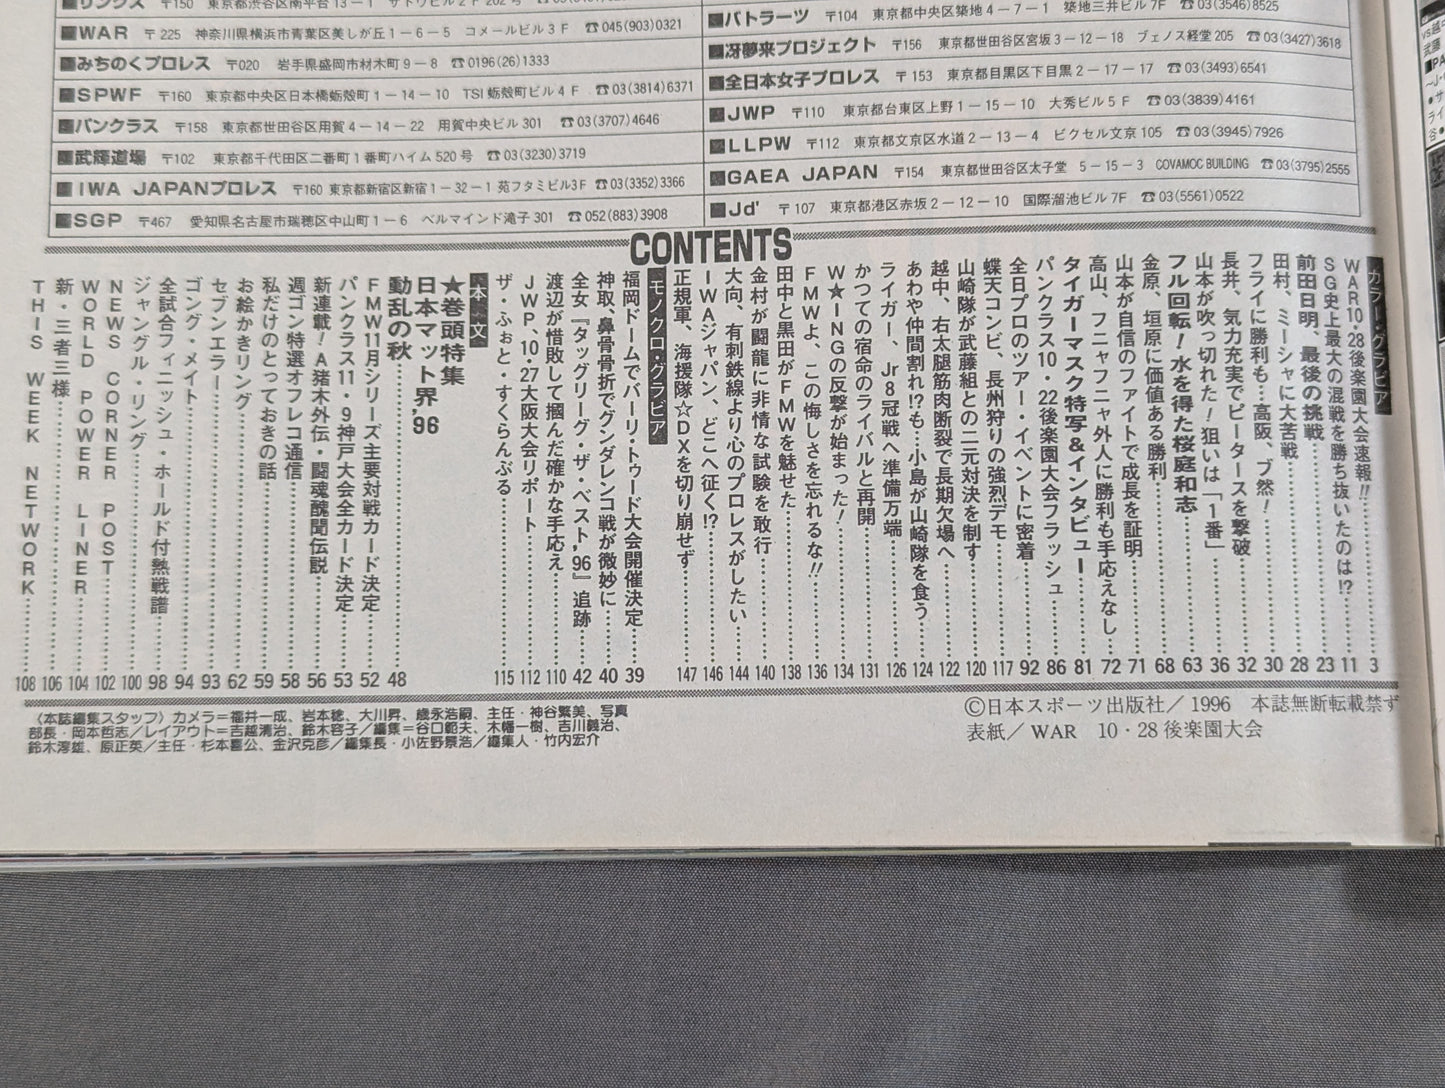 ■リングス 〒150 東京都渋谷区南平台13−1
■WAR 〒225 神奈川県横浜市青葉区美しが丘1−6−5 コメールビル3F ☎045(903)0321
■みちのくプロレス 〒020 岩手県盛岡市材木町9−8 ☎0196(26)1333
■SPWF 〒160 東京都中央区日本橋蛎殻町1−14−10 TSI蛎殻町ビル4F ☎03(3814)6371
■パンクラス 〒158 東京都世田谷区用賀4−14−22 用賀中央ビル301 ☎03(3707)4646
■武輝道場 〒102 東京都千代田区二番町1番町ハイム520号 ☎03(3230)3719
■IWA JAPANプロレス 〒160 東京都新宿区新宿1−32−1 苑フタミビル3F ☎03(3352)3366
■SGP 〒467 愛知県名古屋市瑞穂区中山町1−6 ベルマインド滝子301 ☎052(883)3908
■バトラーツ 〒104 東京都中央区築地4−7−1 築地三井ビル7F ☎03(3546)8525
■冴夢来プロジェクト 〒156 東京都世田谷区宮坂3−12−18 ブェノス経堂205 ☎03(3427)3618
■全日本女子プロレス 〒153 東京都目黒区下目黒2−17−17 ☎03(3493)6541
■JWP 〒110 東京都台東区上野1−15−10 大秀ビル5F ☎03(3839)4161
■LLPW 〒112 東京都文京区水道2−13−4 ビクセル文京105 ☎03(3945)7926
■GAEA JAPAN 〒154 東京都世田谷区太子堂 5−15−3 COVAMOC BUILDING ☎03(3795)2555
■Jd' 〒107 東京都港区赤坂2−12−10 国際溜池ビル7F ☎03(5561)0522
CONTENTS
カラー・グラビア……3
WAR10・28後楽園大会速報!!……11
SG史上最大の混戦を勝ち抜いたのは!?……23
前田日明、最後の挑戦……28
田村、ミーシャに大苦戦……30
フライに勝利も…高阪、ブ然!……32
長井、気力充実でピータースを撃破
山本が吹っ切れた!狙いは「1番」……36
フル回転!水を得た桜庭和志……63
金原、垣原に価値ある勝利……68
山本が自信のファイトで成長を証明……71
高山、フニャフニャ外人に勝利も手応えなし……72
タイガーマスク特写&インタビュー……81
パンクラス10・22後楽園大会フラッシュ……86
全日プロのツアー・イベントに密着……92
蝶天コンビ、長州狩りの強烈デモ……117
山崎隊が武藤組との二元対決を制す……120
越中、右太腿筋肉断裂で長期欠場へ……122
あわや仲間割れ!?も…小島が山崎隊を食う……124
ライガー、Jr8冠戦へ準備万端……126
かつての宿命のライバルと再開……131
W★INGの反撃が始まった!……134
FMWよ、この悔しさを忘れるな!!……136
田中と黒田がFMWを魅せた……138
金村が闘龍に非情な試験を敢行……140
大向、有刺鉄線より心のプロレスがしたい……144
IWAジャパン、どこへ征く!?……146
正規軍、海援隊☆DXを切り崩せず……147
モノクロ・グラビア
福岡ドームでバーリ・トゥード大会開催決定……39
神取、鼻骨骨折でグンダレンコ戦が微妙に……40
全女『タッグリーグ・ザ・ベスト,96』追跡……42
渡辺が惜敗して掴んだ確かな手応え……110
JWP、10・27大阪大会リポート……112
ザ・ふぉと・すくらんぶる……115
本 文
★巻頭特集
日本マット界,96
動乱の秋……48
FMW11月シリーズ主要対戦カード決定……52
パンクラス11・9神戸大会全カード決定……53
新連載!A猪木外伝・闘魂醜聞伝説……56
週ゴン特選オフレコ通信……58
私だけのとっておきの話……59
お絵かきリング……62
セブンエラー……93
ゴング・メイト……94
全試合フィニッシュ・ホールド付熱戦譜……98
ジャングル・リング……100
NEWS CORNER POST……102
WORLD POWER LINER……104
新・三者三様……106
THIS WEEK NETWORK……108
〈本誌編集スタッフ〉カメラ=福井一成、岩本稔、大川昇、歳永浩嗣、主任・神谷繁美、写真
部長・岡本哲志/レイアウト=吉越清治、鈴木容子/編集=谷口範夫、木幡一樹、吉川義治、
鈴木淳雄、原正英/主任・杉本喜公、金沢克彦/編集長・小佐野景浩/編集人・竹内宏介
©日本スポーツ出版社/1996 本誌無断転載禁ず
表紙/WAR 10・28後楽園大会